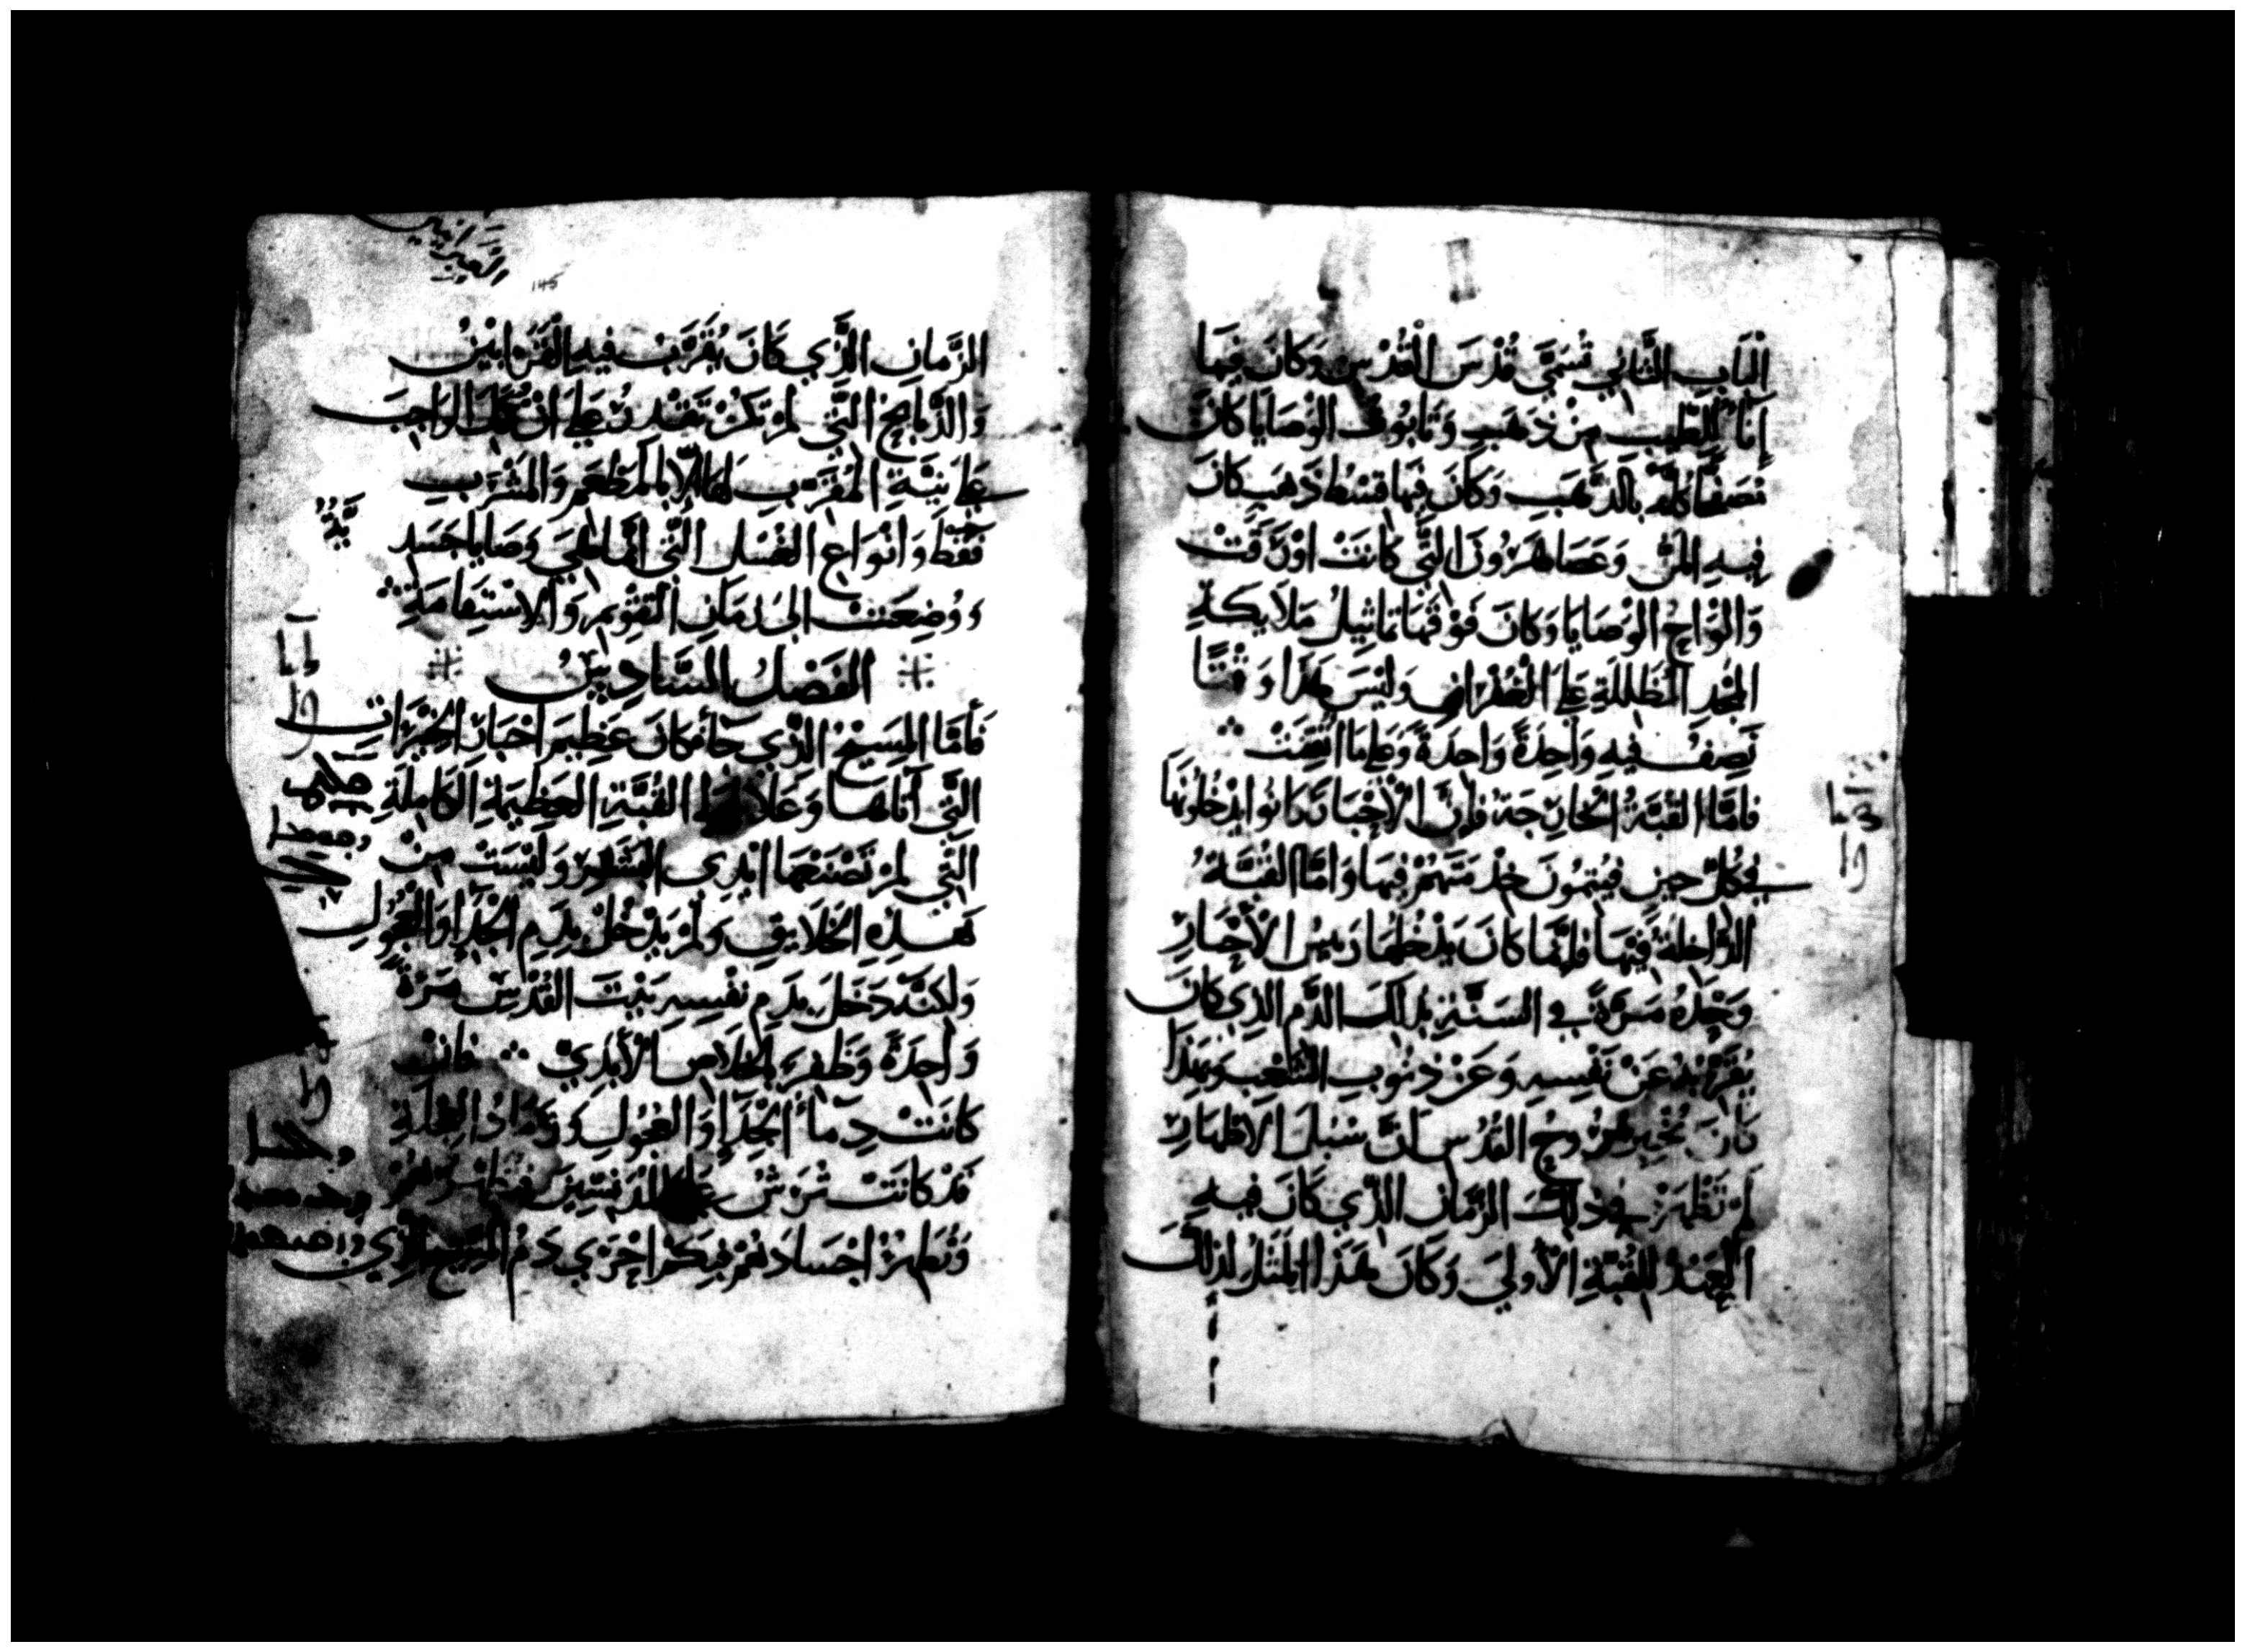 الْبَابِ الثَّانِي تُسَمَّى قُدْسَ الْقُدْسِ وَكَانَ فِيهَا
إِنَاءُ الطِّيبِ مِنْ ذَهَبٍ وَتَابُوتُ الْوَصَايَا كَانَ
مُصَفَّحًا كُلُّهُ بِالذَّهَبِ وَكَانَ فِيهَا قِسْطُ ذَهَبٍ كَانَ
فِيهِ الْمَنُّ وَعَصَا هَرُونَ الَّتِي كَانَتْ اوْرَقَتْ
وَالْوَاحُ الْوَصَايَا وَكَانَ فَوْقَهَا تَمَاثِيلُ مَلَايِكَةِ
الْمَجْدِ الْمُظَلِّلَةِ عَلَى الْغُفْرَانِ وَلَيْسَ هَذَا وَقْتًا
نَصِفُ فِيهِ وَاحِدَةً وَاحِدَةً وَعَلَى مَا اتْقِنَتْ
فَامَّا الْقُبَّةُ الْخَارِجَةُ فَإِنَّ الْأَحْبَارَ كَانُوا يَدْخُلُونَهَا
فِي كُلِّ حِينٍ فَيُتِمُّونَ خِدْمَتَهُمْ فِيهَا وَامَّا الْقُبَّةُ
الدَّاخِلَةُ فِيهَا فَإِنَّمَا كَانَ يَدْخُلُهَا رَيِيسُ الْأَحْبَارِ
وَحْدَهُ مَرَّةً فِي السَّنَةِ بِذَلِكَ الدَّمِ الَّذِي كَانَ
يُقَرِّبُهُ عَنْ نَفْسِهِ وَعَنْ ذُنُوبِ الشَّعْبِ وَبِهَذَا
كَانَ يُخْبِرُ رُوحُ الْقُدُسِ انَّ سُبُلَ الْاطْهَارِ
لَمْ تَظْهَرْ فِي ذَلِكَ الزَّمَانِ الَّذِي كَانَ فِيهِ
الْعِيدُ لِلْقُبَّةِ الْأُولَى وَكَانَ هَذَا الْمَثَلُ لِذَلِكَ
145
الزَّمَانِ الَّذِي كَانَ يُقَرَّبُ فِيهِ الْقَرَابِينُ
وَالذَّبَايِحُ الَّتِي لَمْ تَكُنْ تَقْدِرُ عَلَى انْ تُكَمِّلَ الْوَاجِبَ
عَلَى نِيَّةِ الْمُقَرِّبِ لَهَا إِلَّا بِالْمَطْعَمِ وَالْمَشْرَبِ
فَقَطْ وَانْوَاعِ الْغُسْلِ الَّتِي انَّمَا هِيَ وَصَايَا جَسَدٍ
وَوُضِعَتْ الَى زَمَانِ التَّقْوِيمِ وَالْاسْتِقَامَةِ
الفَصْلُ السَّادِسُ
فَأَمَّا الْمَسِيحُ الَّذِي جَاءَ فَكَانَ عَظِيمَ احْبَارِ الْخَيْرَاتِ
الَّتِي أَتَاهَا وَعَلَا الْقُبَّةِ الْعَظِيمَةِ الْكَامِلَةِ
الَّتِي لَمْ تَصْنَعْهَا ايْدِي الْبَشَرِ وَلَيْسَتْ مِنْ
هَذِهِ الْخَلَايِقِ وَلَمْ يَدْخُلْ بِدَمِ الْجِدَاءِ وَالْعُجُولِ
وَلَكِنَّهُ دَخَلَ بِدَمِ نَفْسِهِ بَيْتَ الْقُدْسِ مَرَّةً
وَاحِدَةً وَظَفِرَ بِالْخَلَاصِ الْأَبَدِيِّ فَانْ
كَانَتْ دِمَاءُ الْجِدَاءِ وَالْعُجُولِ وَرَمَادُ الْعِجْلَةِ
قَدْ كَانَتْ تُرَشُّ عَلَى الْمُدَنَّسِينَ فَتُطَهِّرُهُمْ
وَتُطَهِّرُ اجْسَادَهُمْ فَبِكَمْ احْرَى دَمُ الْمَسِيحِ الَّذِي